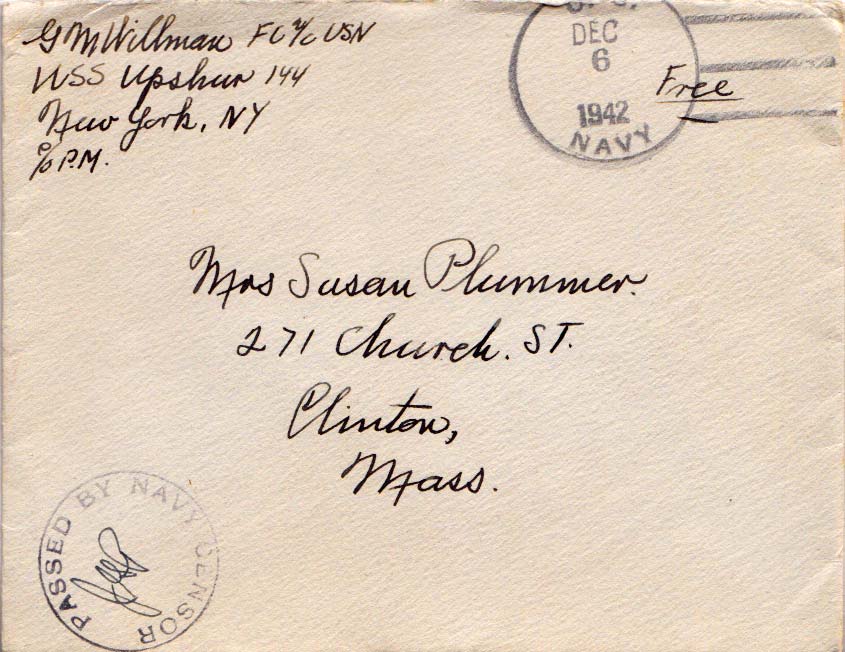 G M Willman FC 2/c USN
USS Upshur 144
New York, NY
c/o P.M.
DEC
6
1942
NAVY
Free
Mrs Susan Plummer.
271 Church. ST.
Clinton,
Mass.
PASSED BY NAVY CENSOR